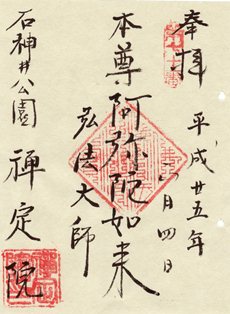 奉拝
平成廿五年
月四日
本尊阿弥陀如来
弘法大師
石神井公園
禅定院